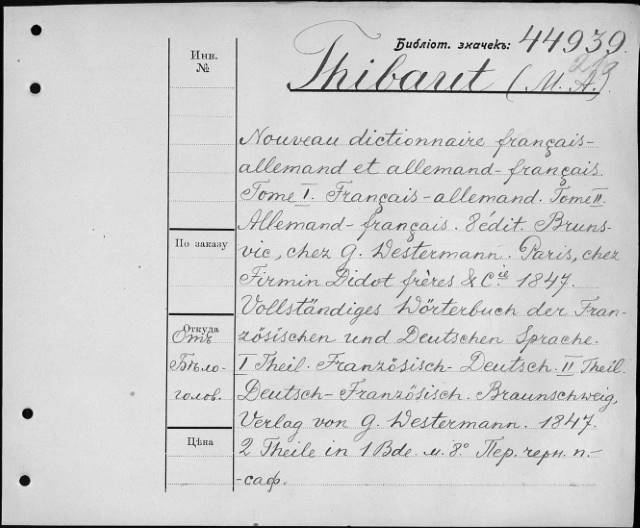 Библіот. значекъ: 44939.
Инв.
№
Thibaut (M. A.)
Nouveau dictionnaire français-
allemand et allemand-français.
Tome I. Français-allemand. Tome II.
Allemand-français. 8 édit. Bruns-
vic, chez G. Westermann. Paris, chez
Firmin Didot frères & Cie 1847.
Vollständiges Wörterbuch der Fran-
zösischen und Deutschen Sprache.
I Theil. Französisch-Deutsch. II Theil.
Deutsch-Französisch. Braunschweig,
Verlag von G. Westermann. 1847.
2 Theile in 1 Bde. м. 8° Пер. черн. п.-
-саф.
По заказу
Откуда
Отъ
Бѣло-
голов.
Цѣна